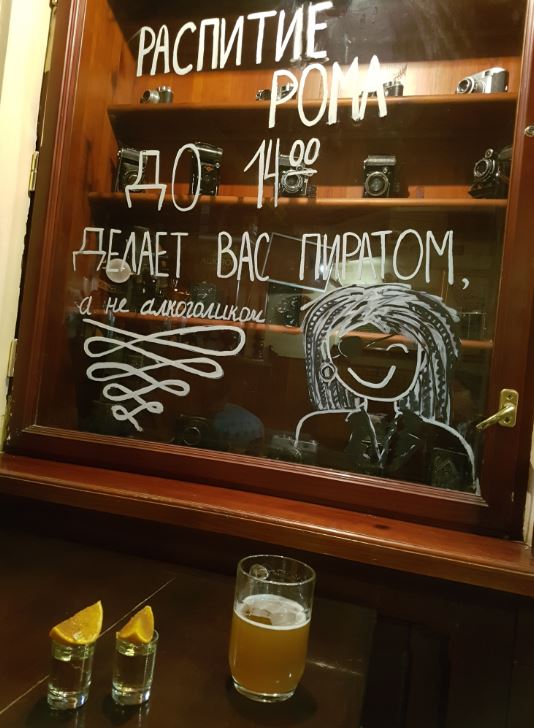 РАСПИТИЕ
РОМА
ДО 14⁰⁰
ДЕЛАЕТ ВАС ПИРАТОМ,
а не алкоголиком